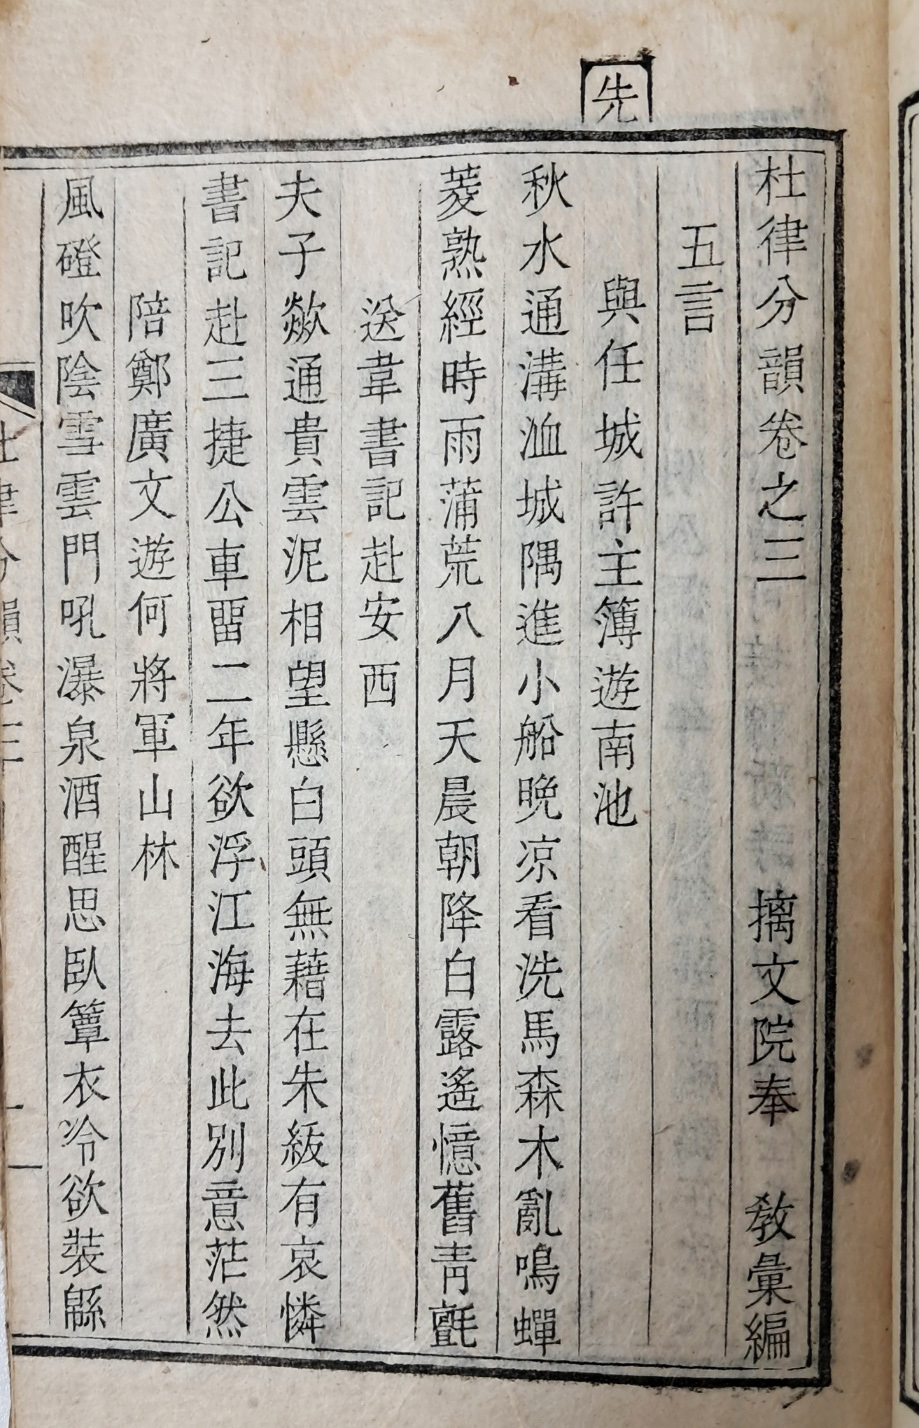 先
杜律分韻卷之三　摛文院奉　敎彙編
五言
與任城許主簿遊南池
秋水通溝洫城隅進小船晚凉看洗馬森木亂鳴蟬
菱熟經時雨蒲荒八月天晨朝降白露遙憶舊靑氈
送韋書記赴安西
夫子歘通貴雲泥相望懸白頭無藉在朱紱有哀憐
書記赴三捷公車畱二年欲浮江海去此別意茫然
陪鄭廣文遊何將軍山林
風磴吹陰雪雲門吼瀑泉酒醒思臥簟衣冷欲裝緜